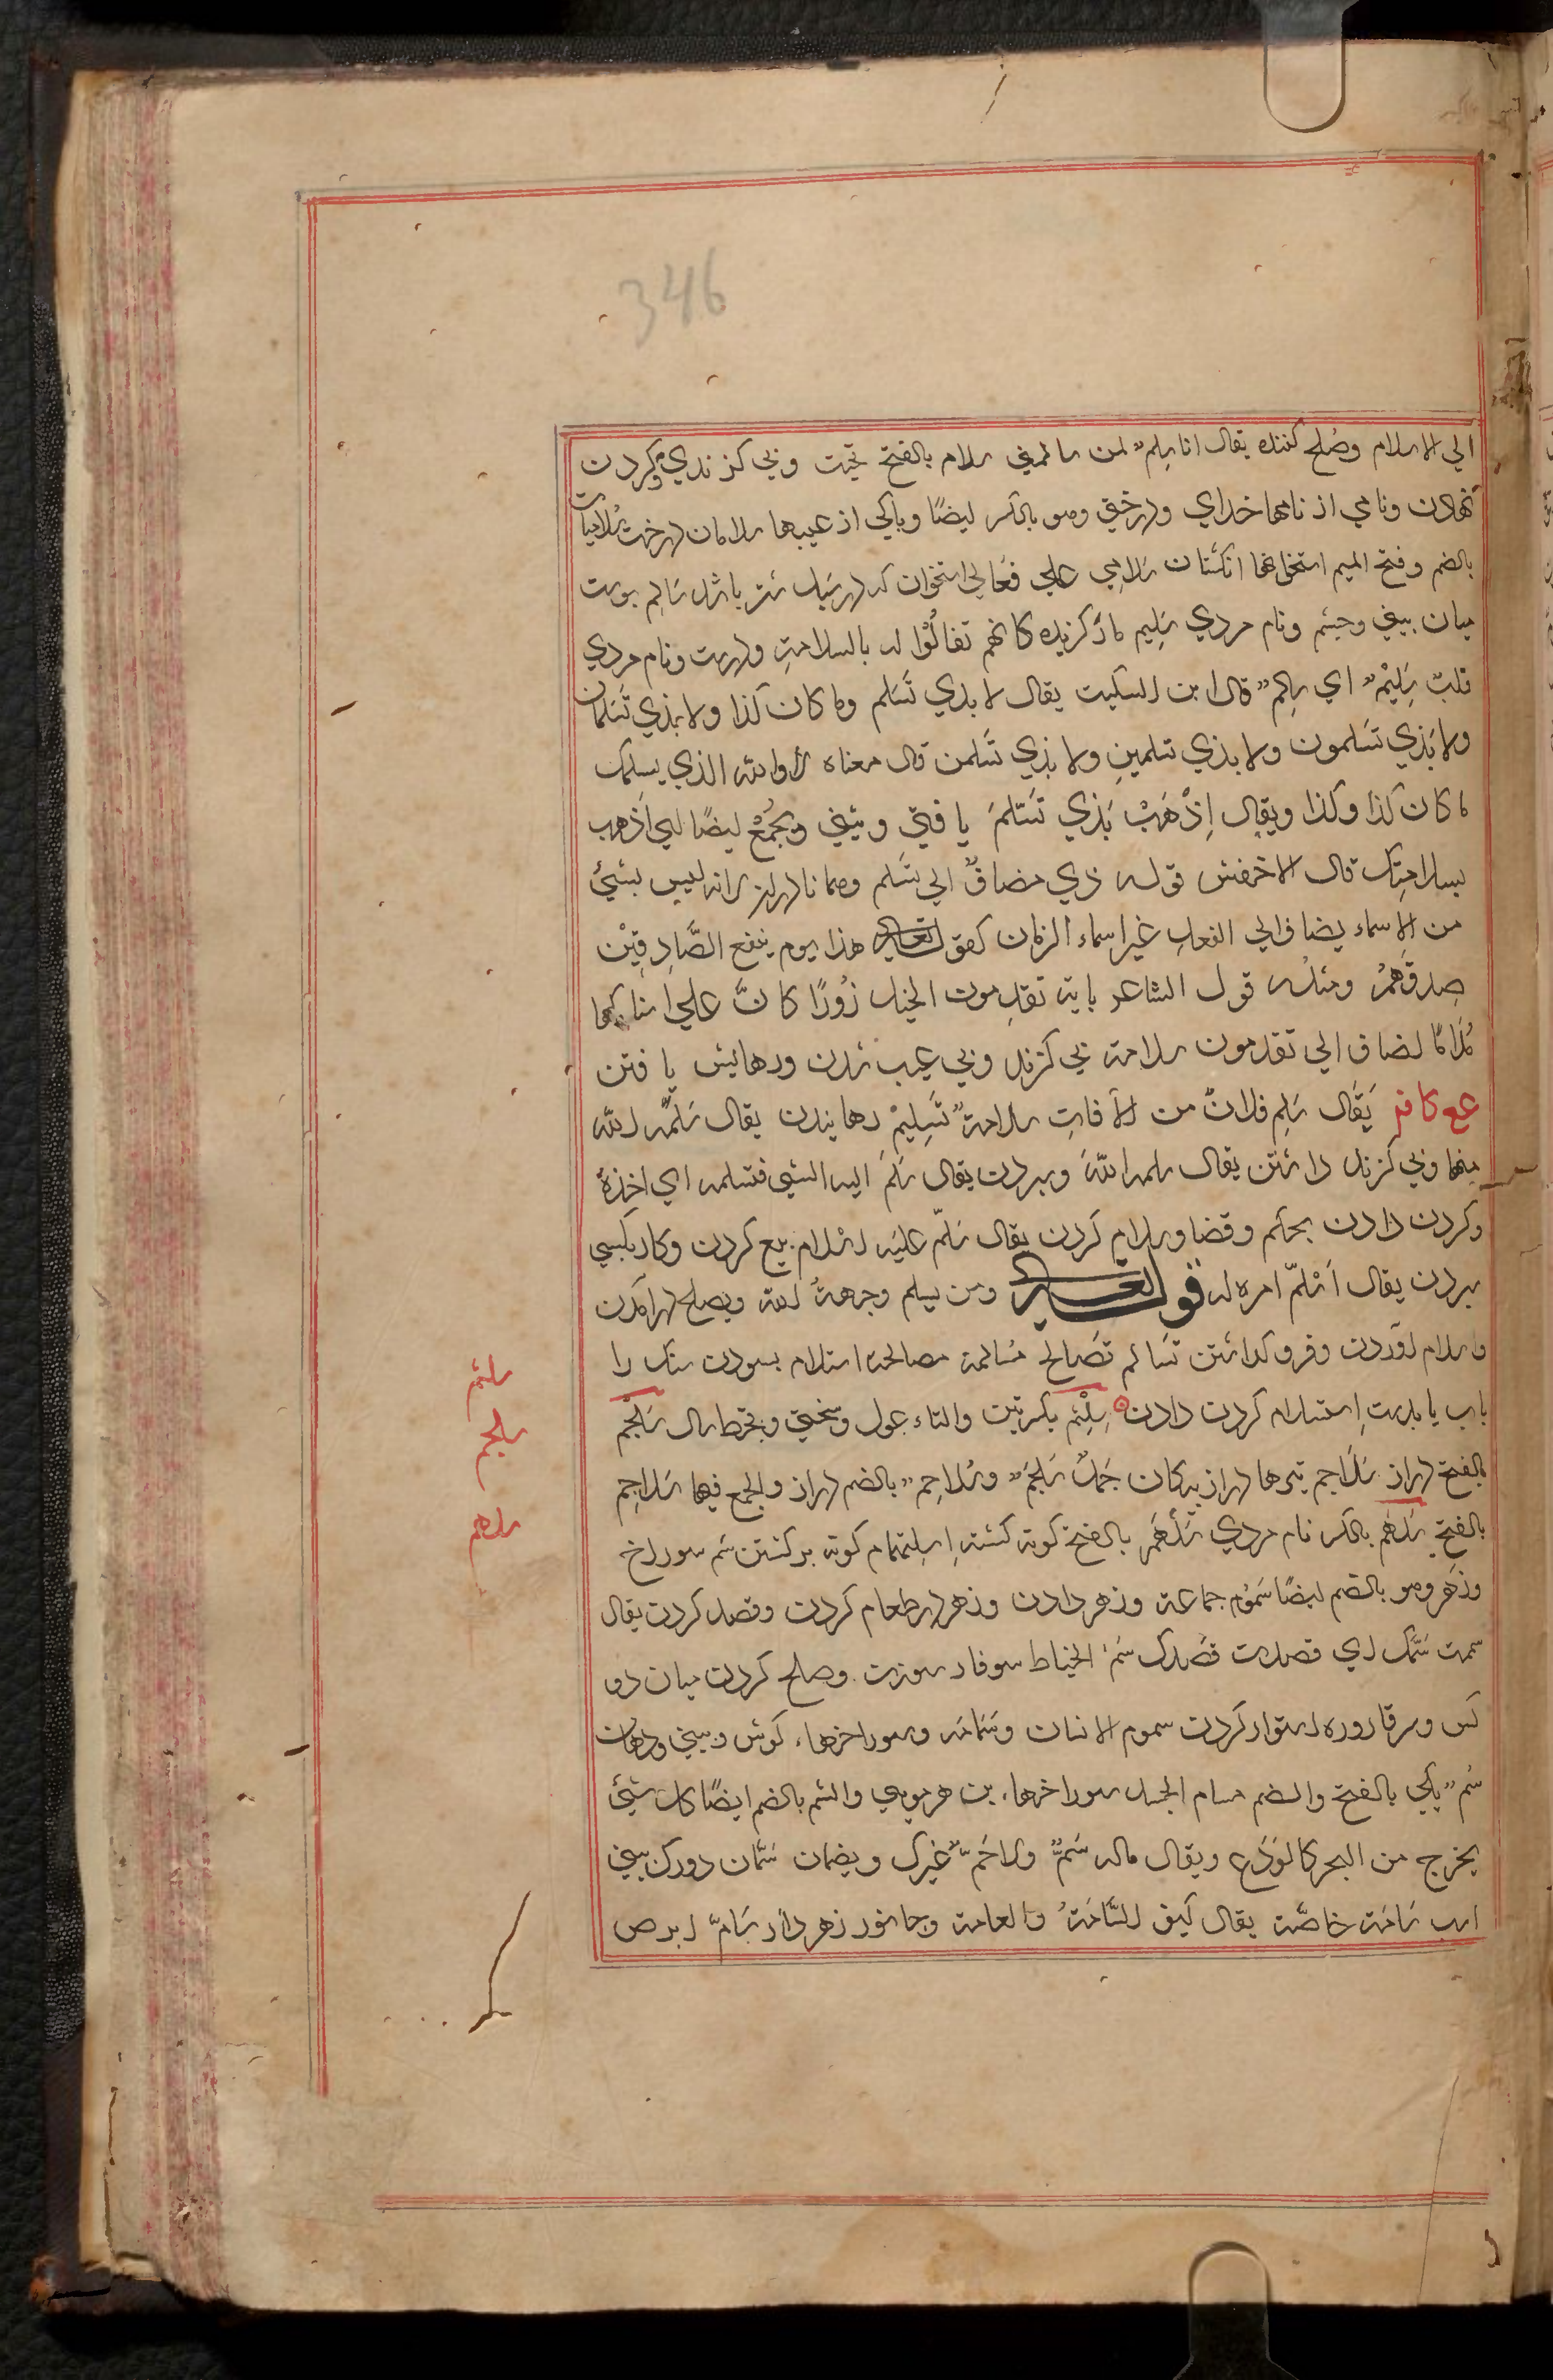 346
الي الاسلام وصُلح كننده يقال انا سِلم لمن سالمني سلام بالفتح تحيت وبي كزندي وكردن
نهادن ونامي از نامها خداي ودرختي وهو بالكسر ايضًا وپاكي از عيبها سلامان درخت سُلاميات
بالضم وفتح الميم استخوانها انكشتان سَلامِي علي فعَالي استخوان كه در سُبل شتر باشد سَالِم پوست
ميان بيني وچشم ونام مردي سَلِيم مار كزيده كانهم تفالُوْا له بالسلامةِ ودرست ونام مردي
قلبٌ سَلِيْمٌ اي سالم قال ابن السكيت يقال لا بذي تَسْلم وما كان كذا ولا بذي تَسْلمان
ولا بذي تَسْلمون ولا بذي تسلمين ولا بذي تَسْلمن قال معناه لا والله الذي يسلمك
ما كان كذا وكذا ويقال اِذْهَبْ بَذي تَسْلمَ يا فتي ويثني ويُجمُعْ ايضًا اي اذهب
بسلامتك قال الاخفش قوله ذي مضافٌ الي تسلم وهما نادر لانه ليس بشيئ
من الاسماء يضاف الي الفعل غير اسماء الزمان كقوله تعالي هذا يوم ينفع الصَّادِقِيْن
صِدقَهمُ ومثلُه قول الشاعر باية تقدمون الخيل زُوْرًا كانَّ علي سنابكها
مُدَامًا اضاف الي تقدمون سلامة بي كزند وبي عيب شدن ورهايش يا فتن
عع كا فر يَقال سَلِم فلانٌ من الآفاتِ سلامةً تَسْلِيْم رهانيدن يقال سَلَّمه الله
منها وبي كزند داشتن يقال سلمه اللهُ وسپردن يقال سَلَّمَ اليه الشيئ فتسلمه اي اخذهُ
وكردن دادن بحكم وقضا وسلام كردن يقال سَلّم عليه اسْلام بيع كردن وكار بكسي
سپردن يقال اَسْلمّ امره له قوله تعالي ومن يسلم وجههُ لله وبصلح درآمدن
واسلام آوردن وفرو كداشتن تَسَالم تصَالح مُسالمة مصالحة استلام بسودن سنك را
باب يا بدست اِستسلام كردن دادن سِلْتِم بكسرتين والتاء غول وسختي وقحط سال سَلْجم
بالفتح دراز سَلَاجم تيرها دراز پيكان جَمَلٌ سَلْجَمٌ وسُلاجِم بالضم دراز والجمع فيها سَلاجِم
بالفتحِ سِلهم بالكسر نام مردي سَلْهَمْ بالفتح كونه كشته اِسلِهمام كونه بركشتن سَم سوراخ
وزهر وهو بالضم ايضًا سَمُوْم جماعة وزهر دادن وزهر در طعام كردن وقصد كردن يقال
سممت سَمّك اي قصدت قصْدك سَمُّ الخياط سوفار سوزن وصلح كردن ميان دو
كس وسر قاروره استوار كردن سموم الانسان وسَمامَه سوراخها، كوش وبيني ودهان
سُم يكي بالفتح والضم مسام الجسد سوراخها، بن هر مويي والسُّم بالضم ايضًا كل شيئ
يخرج من البحر كالوَدَع ويقال ماله سَمٌّ ولا حَمٌّ غيرك ويضمان سَمّان دورك بيني
اسب سَامّة خاصَّة يقال كيف السَّامّةُ والعامة وجانور زهر دار سَامّ ابرص
سلتم
سلجم
سلهم